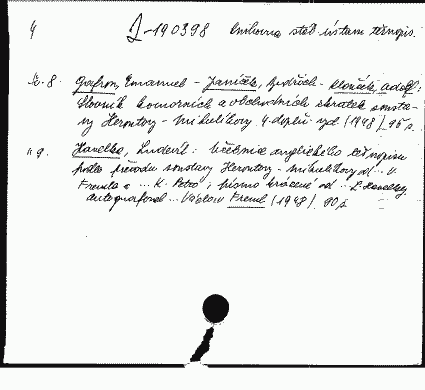 4 I-190398 Knihovna stát. ústavu těsnopis.
č. 8. Gafron, Emanuel - Janíček, Bedřich - Klouček, Adolf:
Slovník komorních a obchodních zkratek sousta-
vy Heroutovy-Mikulíkovy. 4. dopln. vyd. (1948) 95 s.
č. 9. Havelka, Ludevít: Učebnice anglického těsnopisu
podle převodu soustavy Heroutovy-Mikulíkovy od ... V.
Frencla a ... K. Petrů; písmo krácené od ... L. Havelky
autografoval ... Václav Frencl (1948). 80 s.